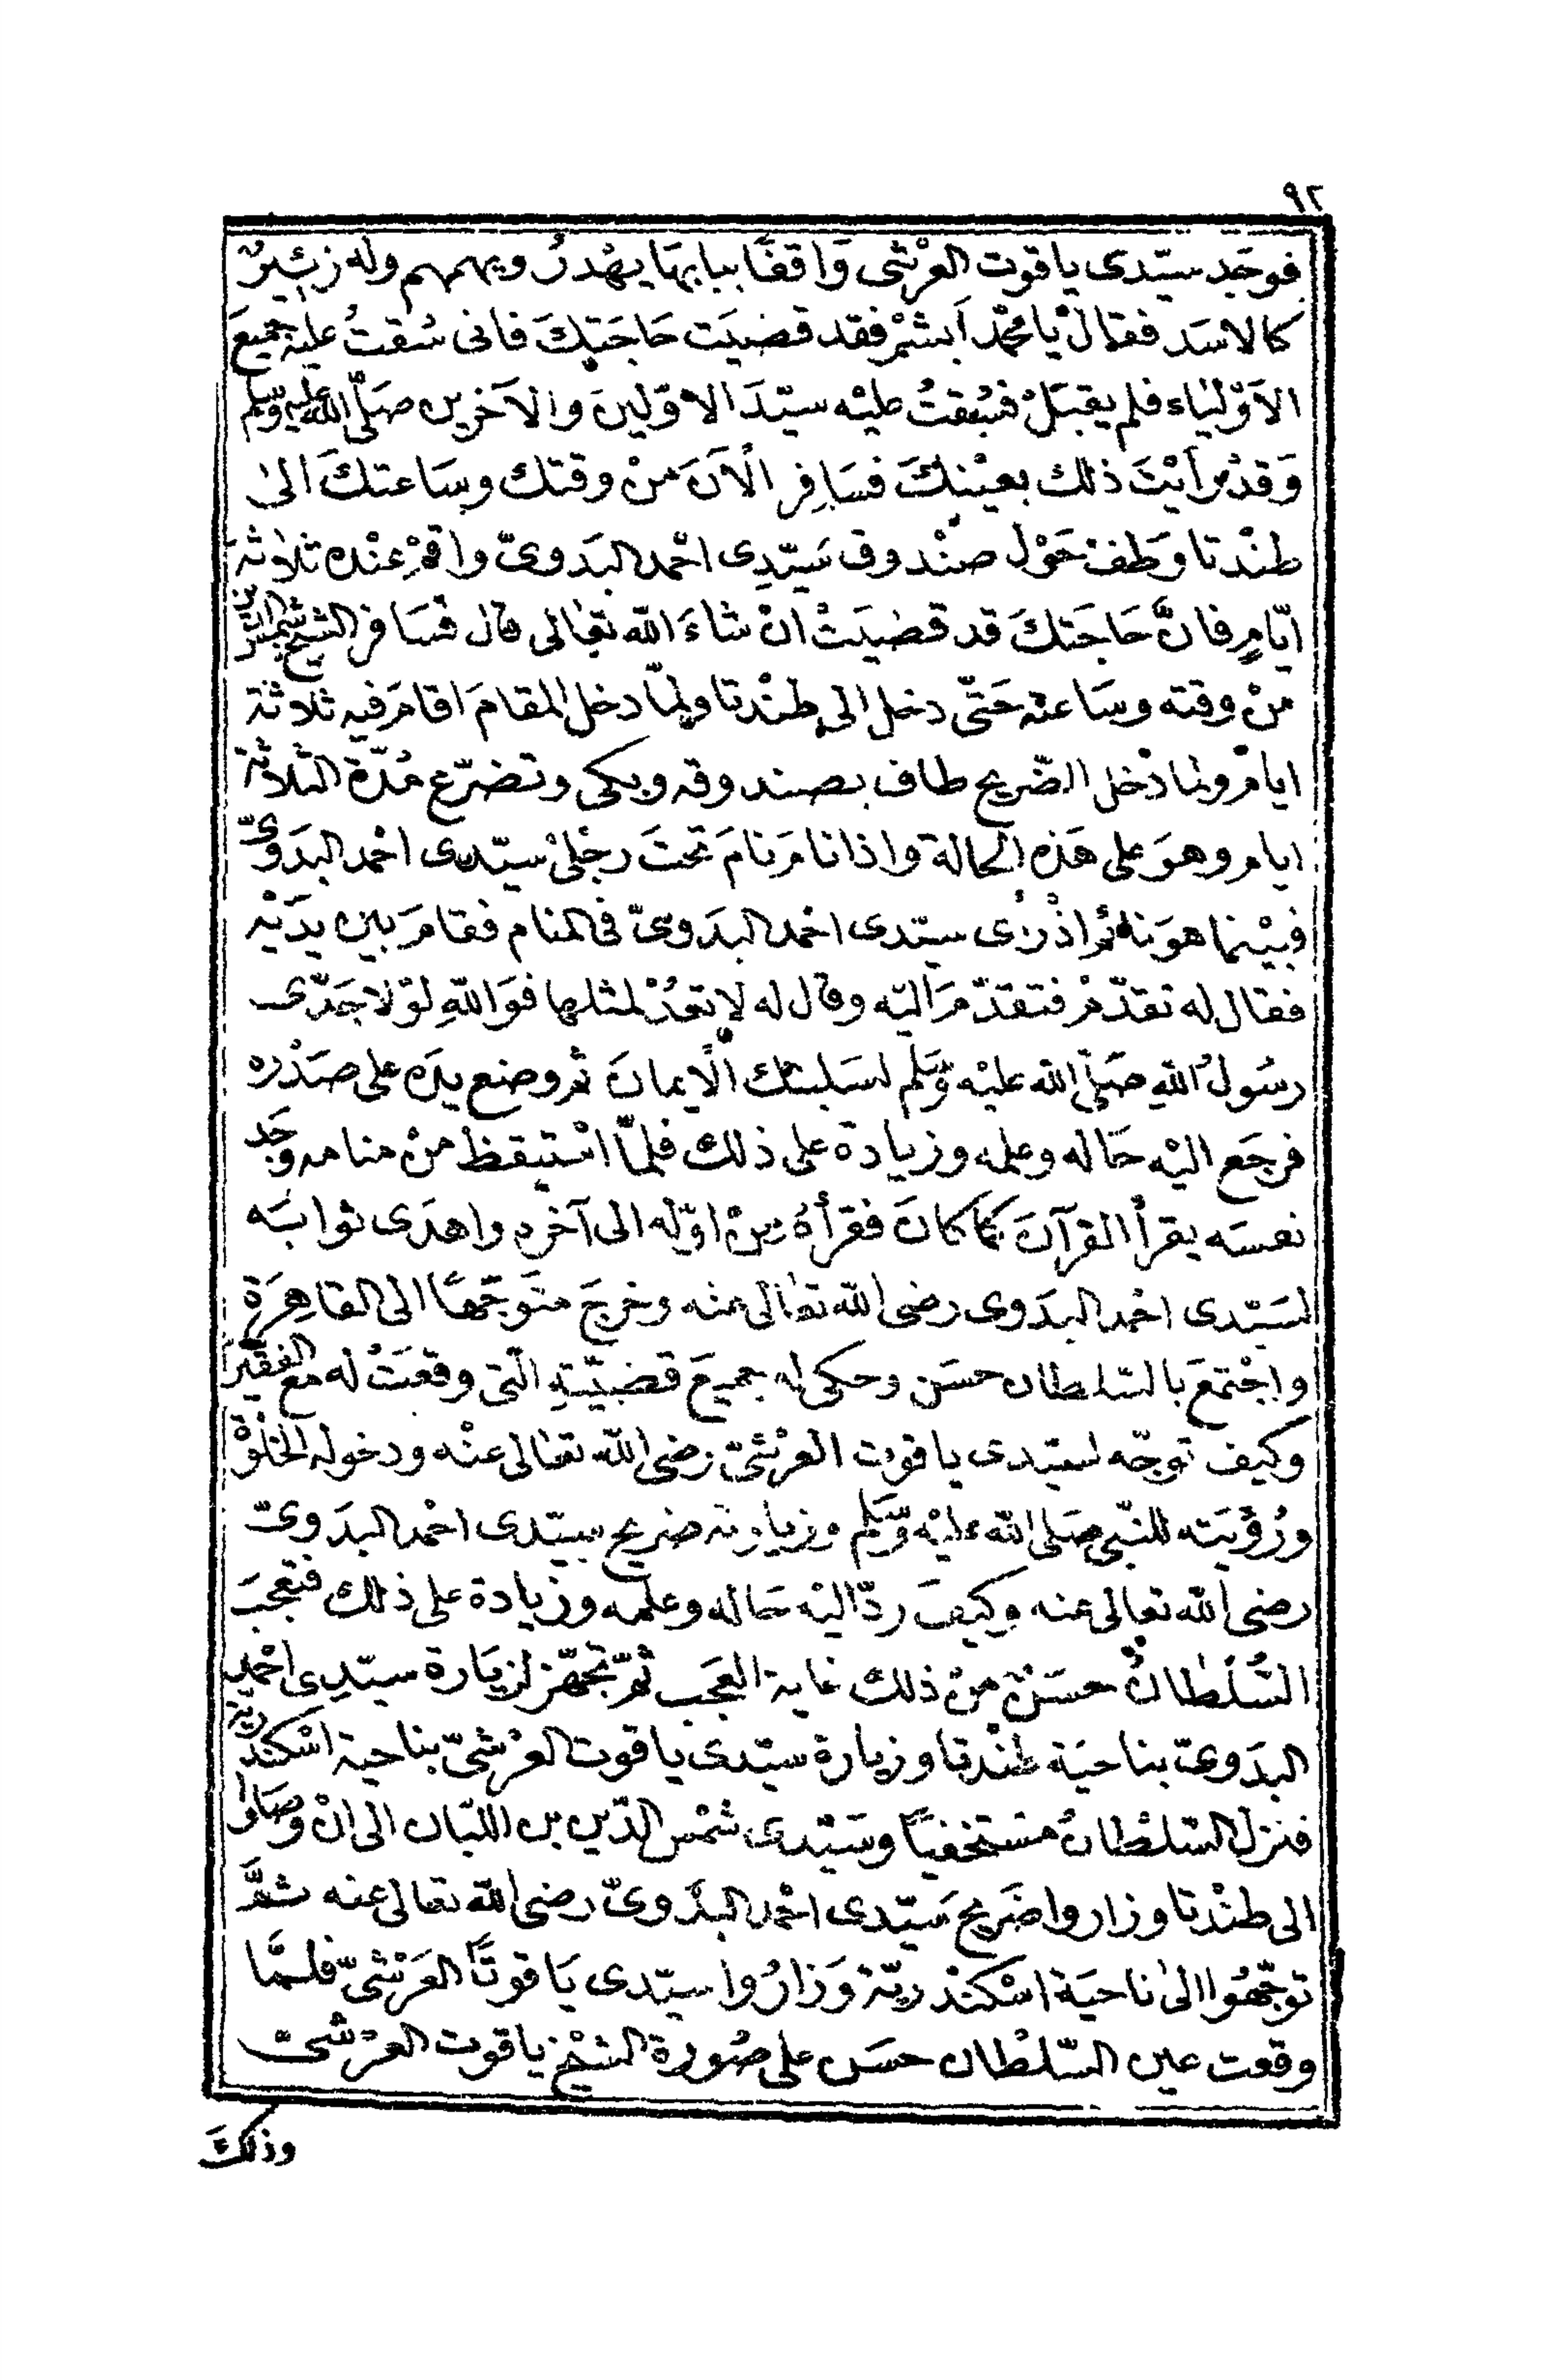 ٩٢
فوجَد سيّدى ياقوت العرْشى وَاقفًا ببابهَا يهْدرُ ويهمهم وله زئيرٌ
كالاسَد فقال يا محمّد اَبشرْ فقد قضيَت حَاجَتكَ فانى سُقتُ عليْه جميعَ
الاَوْلياء فلم يقبَلْ فسُقتُ عليْه سيّدَ الاوّلينَ والآخرين صَلّى الله عليه وسَلم
وَقدْ رَاَيْتَ ذلك بعيْنكَ فسَافِر الْآنَ منْ وقتك وسَاعتكَ الىٰ
طنْدتا وَطفْ حَوْل صنْدوق سَيّدِى احْمد البَدَوىّ واقمْ عنْده ثلاثة
ايّامٍ فانَّ حَاجَتكَ قد قضيَتْ انْ شاءَ الله تعَالى قال فسَافر الشيخ شمس الدّين
منْ وقته وسَاعته حَتّى دخل الى طنْدتا ولمّا دخل المقامَ اقامَ فيه ثلاثة
ايام ولما دَخل الضّريح طاف بصندوقه وبكى وتضرّع مُدّة الثلاثة
ايام وهوَ على هَذه الحالة واذا نامَ نامَ تحتَ رجْلىْ سيّدى احْمد البَدَوىّ
فبيْنما هوَ نائم اذْ رَأى سيّدى احْمد البَدَوىّ فى المنام فقامَ بين يدَيْه
فقال له تقدّمْ فتقدّمَ اليْه وقال له لا تعُدْ لمثلها فوَاللهِ لوْلا جَدّى
رسُولُ اللهِ صَلى الله عليْه وَسَلم لسَلبتك الْايمانَ ثم وضع يدَه على صَدْره
فرجَع اليْه حَاله وعلمه وزيادة على ذلك فلمّا اسْتيقظ منْ منامه وجَد
نفسَه يقرأ القرآنَ كما كانَ فقرأهُ منْ اوّله الى آخره واهدَى ثوابَه
لسَيّدى احْمد البدَوى رضى الله تعَالى عنه وخرجَ متوَجّهًا الى القاهِرَة
واجْتمَعَ بالسّلطان حسَن وحكى له جميعَ قضيّتهِ الّتى وقعَتْ له مع الفقير
وكيف توجّه لسيّدى ياقوت العرْشىّ رضى الله تعَالى عنْه ودخوله الخلْوة
ورُؤيَته للنّبى صَلى الله عليْه وَسَّلم وزيارته ضريح سيّدى احْمد البدَوىّ
رضى الله تعالى عنه وكيفَ ردّ اليْه حَاله وعلمه وزيادة على ذلك فتعجبَ
السُّلطانُ حسَنٌ منْ ذلك غاية العجَب ثمّ تجَهّز لزيَارة سيّدِى احْمد
البدَوىّ بناحيَة طنْدتا وزيارة سيّدى ياقوت العرْشىّ بناحية اسْكندريّة
فنزل السّلطانُ مسْتخفيًا وسَيّدى شمْس الدّين بن اللبّان الى انْ وصَلوا
الى طنْدتا وزاروا ضَريح سَيّدى احْمد البدَوىّ رضى الله تعالى عنه ثمَّ
توجّهُوا الىٰ ناحيَة اسْكنْدريّة وَزارُوا سيّدى يَاقوتًا العَرْشىّ فلمَّا
وقعت عين السّلطان حسَن على صُورة الشيْخ ياقوت العرْشىّ
وذلكَ